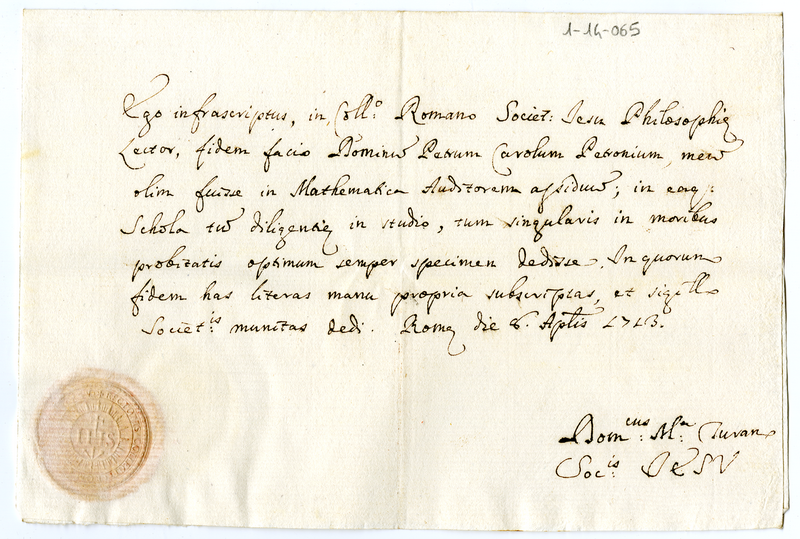 1-14-065
Ego infrascriptus, in Coll:º Romano Societ: Jesu Philosophię
Lector, fidem facio Dominū Petrum Carolum Petronium, meū
olim fuisse in Mathematica Auditorem assiduū; in eaq:
Schola tū diligentię in studio, tum singularis in moribus
probitatis optimum semper specimen dedisse. In quorum
fidem has literas manu propria subscriptas, et sigillo
Societ:is munitas dedi. Romę die 8. Aplis 1713.
Dom:cus M:a
Soc:is JESV
IHS